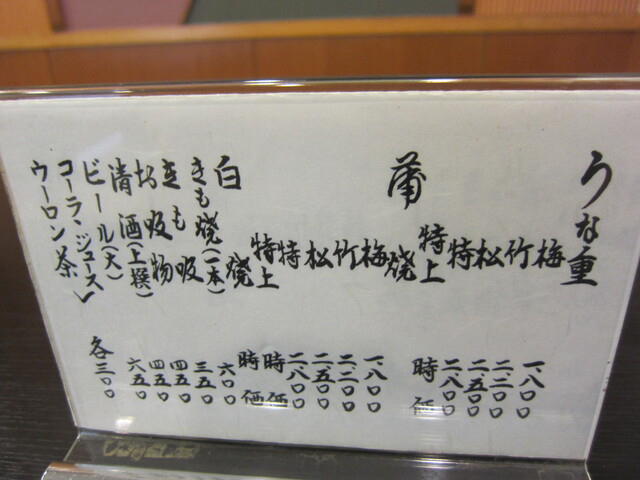 うな重
梅 一、八〇〇
竹 二、二〇〇
松 二、五〇〇
特 二、八〇〇
特上 時価
蒲焼
梅 一、八〇〇
竹 二、二〇〇
松 二、五〇〇
特 二、八〇〇
特上 時価
白焼 時価
きも焼(一本) 六〇〇
きも吸 三五〇
お吸物 四五〇
清酒(上撰) 四五〇
ビール(大) 六五〇
コーラ・ジュース
ウーロン茶 各三〇〇